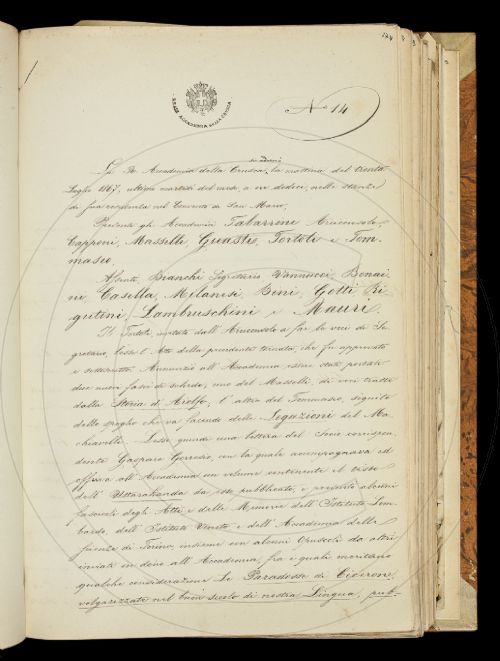 124
REALE ACCADEMIA DELLA CRUSCA
No 14
si adunò
La R. Accademia della Crusca, la mattina del trenta
Luglio 1867, ultimo martedì del mese, a ore dodici, nelle stanze
di sua residenza nel Convento di San Marco,
Presenti gli Accademici Tabarrini Arciconsolo,
Capponi, Masselli, Guasti, Tortoli e Tom-
maseo,
Assenti, Bianchi Segretario, Vannucci, Bonai-
ni, Casella, Milanesi, Bini, Gotti, Ri-
gutini, Lambruschini e Mauri.
Il Tortoli, invitato dall'Arciconsolo a far le veci di Se-
gretario, lesse l'Atto della precedente tornata, che fu approvato
e sottoscritto. Annunziò all'Accademia essere state portate
due nuovi fasci di schede, uno del Masselli, di voci tratte
dalla Storia d'Aiolfo, l'altro del Tommaseo, seguito
dello spoglio che va facendo delle Legazioni del Ma-
chiavelli. Lesse quindi una lettera del Socio corrispon-
dente Gaspare Gorresio, con la quale accompagnava ed
offriva all'Accademia un volume contenente il testo
dell'Uttarakanda da esso pubblicato; e presentò alcuni
fascicoli degli Atti e delle Memorie dell'Istituto Lom-
bardo, dell'Istituto Veneto e dell'Accademia delle
scienze di Torino, insieme con alcuni Opuscoli da altri
inviati in dono all'Accademia, fra i quali meritano
qualche considerazione Le Paradosse di Cicerone,
volgarizzate nel buon secolo di nostra Lingua, pub-